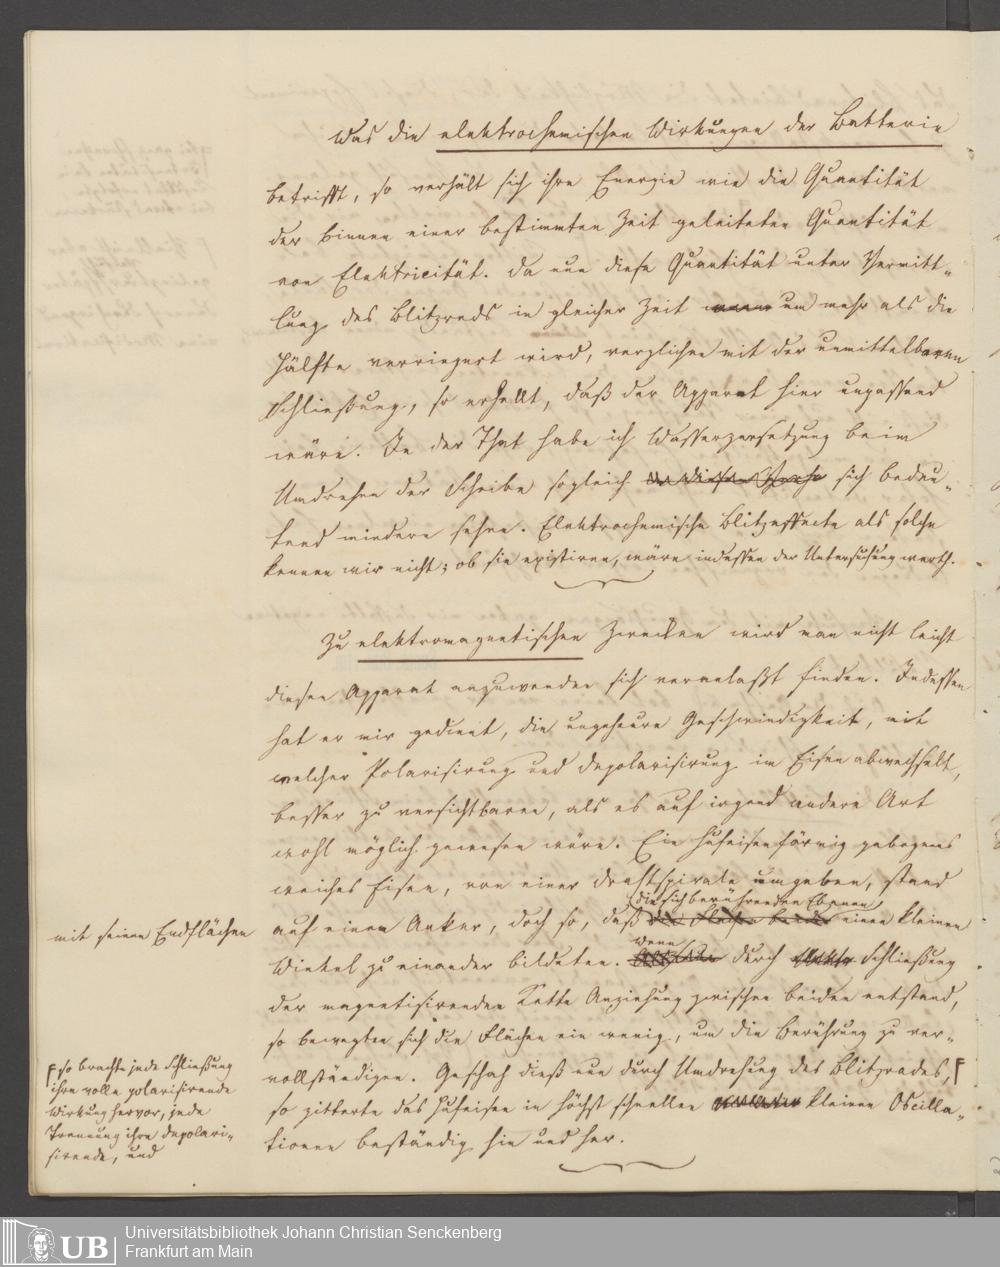 Was die elektrochemischen Wirkungen der Batterie
betrifft, so verhält sich ihre Energie wie die Quantität
der binnen einer bestimmten Zeit geleiteten Quantität
von Elektricität. Da nun diese Quantität unter Vermitt-
lung des Blitzrads in gleicher Zeit um mehr als die
Hälfte verringert wird, verglichen mit der unmittelbaren
Schließung, so erhellt, daß der Apparat hier unpassend
wäre. In der That habe ich Wasserzersetzung beim
Umdrehen der Scheibe sogleich sich bedeu-
tend mindern sehen. Elektrochemische Blitzeffecte als solche
kennen wir nicht; ob sie existiren, wäre indessen der Untersuchung werth.
Zu elektromagnetischen Zwecken wird man nicht leicht
diesen Apparat anzuwenden sich veranlaßt finden. Indessen
hat er mir gedient, die ungeheure Geschwindigkeit, mit
welcher Polarisirung und Depolarisirung im Eisen abwechselt,
besser zu versichtbaren, als es auf irgend andere Art
wohl möglich gewesen wäre. Ein hufeisenförmig gebogenes
weiches Eisen, von einer Drahtspirale umgeben, stand
mit seinen Endflächen
auf einem Anker, doch so, daß die sich berührenden Ebenen einen kleinen
Winkel zu einander bildeten. Wenn durch Schließung
der magnetisirenden Kette Anziehung zwischen beiden entstand,
so bewegten sich die Flächen ein wenig, um die Berührung zu ver-
vollständigen. Geschah dieß nun durch Umdrehung des Blitzrades,
so brachte jede Schließung
ihre volle polarisirende
Wirkung hervor, jede
Trennung ihre depolari-
sirende, und
so zitterte das Hufeisen in höchst schnellen kleinen Oscilla-
tionen beständig hin und her.
UB Universitätsbibliothek Johann Christian Senckenberg
Frankfurt am Main